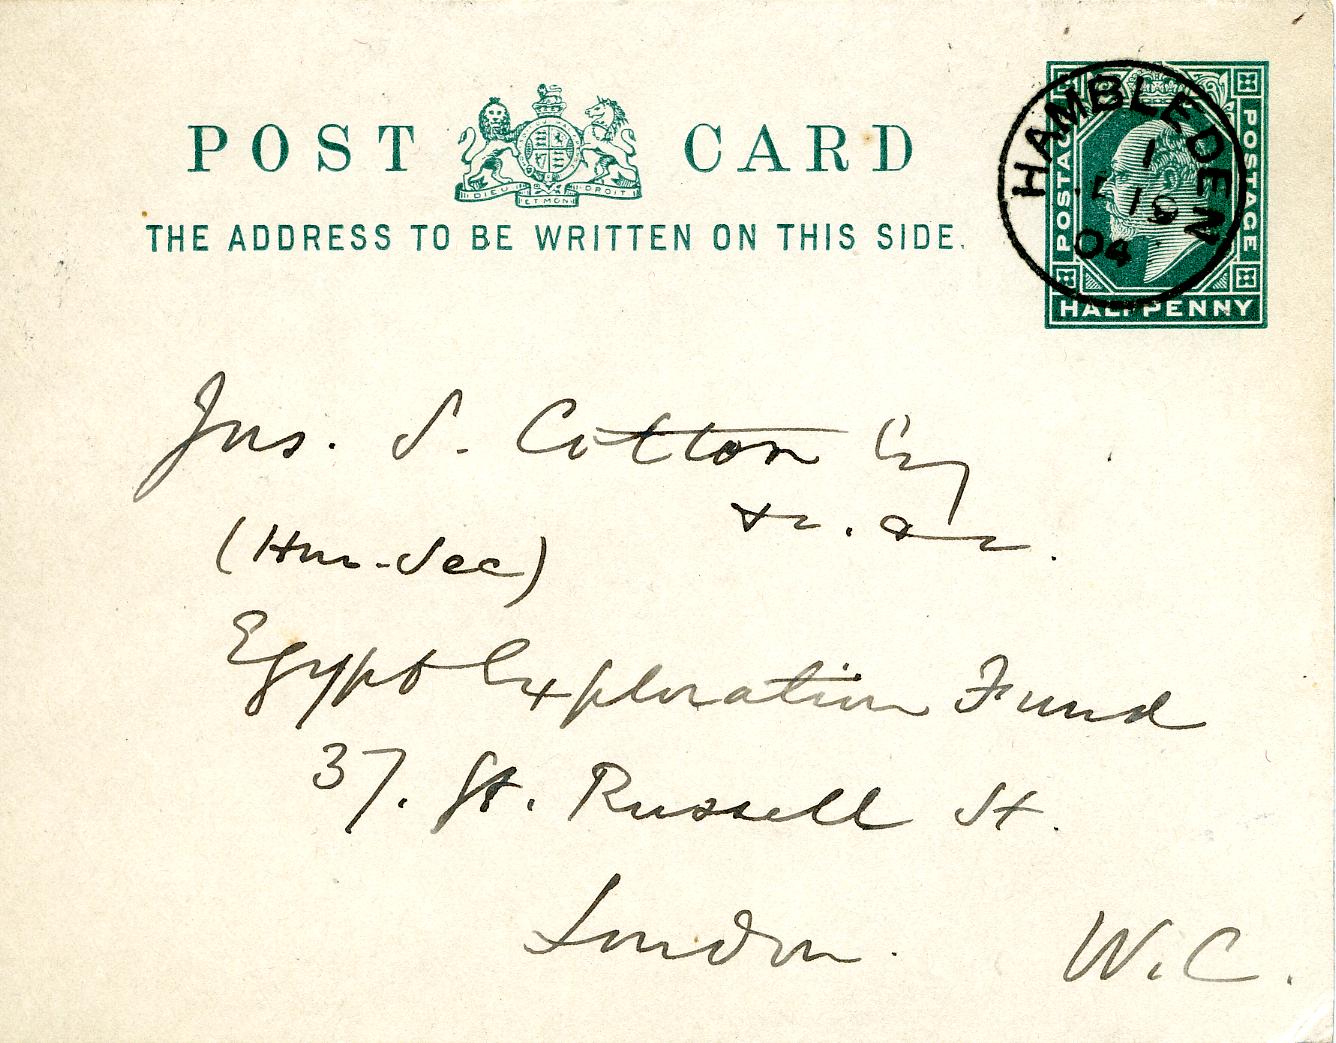 POST CARD
DIEU ET MON DROIT
THE ADDRESS TO BE WRITTEN ON THIS SIDE.
POSTAGE
POSTAGE
HALFPENNY
HAMBLEDEN
1
19
04
Jas. S. Cotton Esq
&c. &c.
(Hon. Sec)
Egypt Exploration Fund
37. Gt. Russell St.
London. W.C.